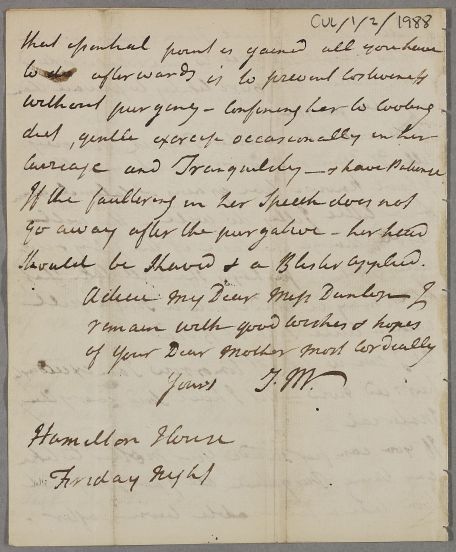 CUL/1/2/1988
that essential point is gained all you have
to do afterwards is to prevent costiveness
without purging – confining her to cooling
diet, gentle exercise occasionally in her
Carriage and Tranquility – & have Patience
If the faultering in her Speech does not
go away after the purgative – her head
should be Shaved & a Blister applied.
Adieu my Dear Miss Dunlop I
remain with good wishes & hopes
of your Dear Mother most Cordially
Yours J.M.
Hamilton House
Friday Night